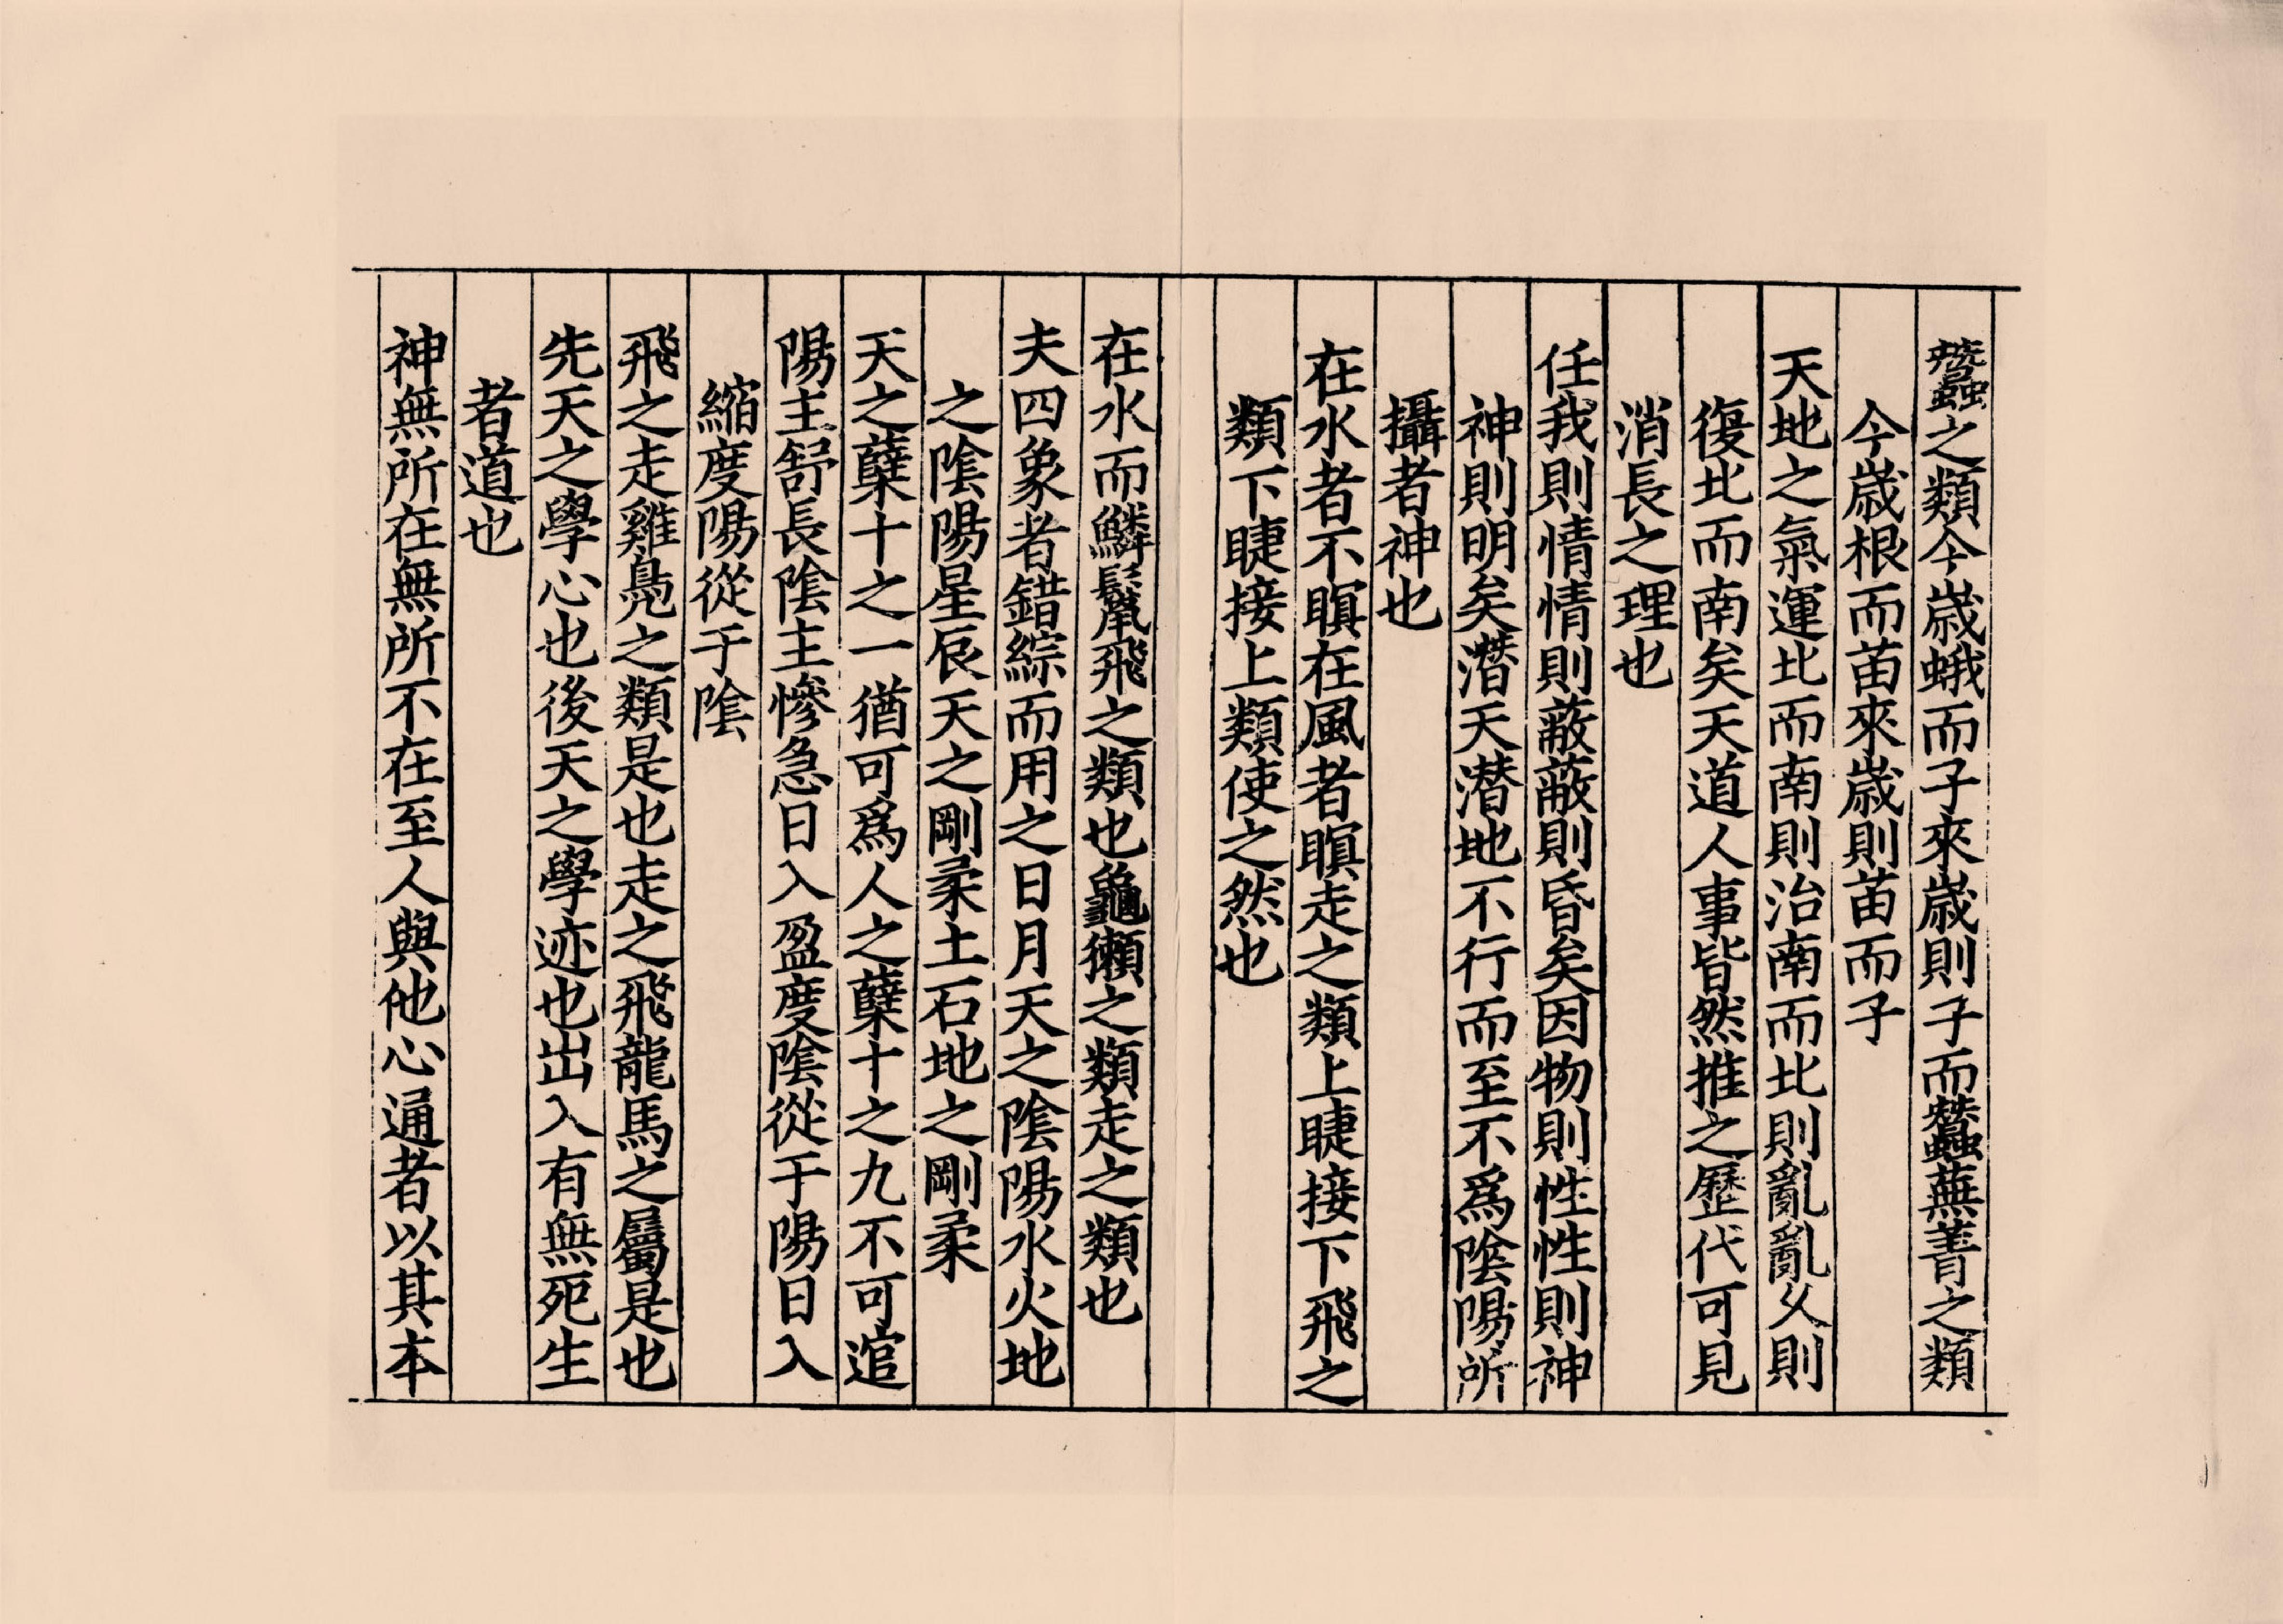 蠶之類今歳蛾而子來歳則子而蠶蕪菁之類
今歳根而苗來歳則苗而子
天地之氣運北而南則治南而北則亂亂乆則
復北而南矣天道人事皆然推之歷代可見
消長之理也
任我則情情則蔽蔽則昏矣因物則性性則神
神則明矣潛天潜地不行而至不爲陰陽所
攝者神也
在水者不瞑在風者瞑走之類上睫接下飛之
類下睫接上類使之然也
在水而鱗鬛飛之類也龜獺之類走之類也
夫四象者錯綜而用之日月天之陰陽水火地
之陰陽星辰天之剛柔土石地之剛柔
天之孽十之一猶可爲人之孽十之九不可逭
陽主舒長陰主慘急日入盈度陰從于陽日入
縮度陽從于陰
飛之走雞鳧之類是也走之飛龍馬之屬是也
先天之學心也後天之學迹也出入有無死生
者道也
神無所在無所不在至人與他心通者以其本